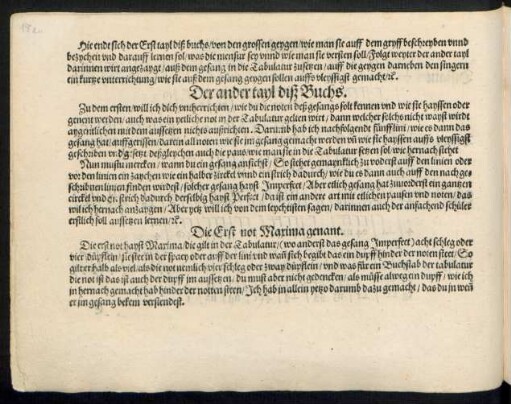 Hie endet sich der Erst tayl diß buchs/von den grossen geygen/wie man sie auff dem gryff beschreyben vnnd
bezychen vnd darauff lernen sol/was die mensur sey vnnd wie man sie versten soll/Folgt weyter der ander tayl
darinnen wirt angezaygt/auß dem gesang in die Tabulatur zusetzen/auff die geygen darneben den singern
ein kurtze vnterrichtung/wie sie auß dem gesang geygen sollen auffs vleyssigst gemacht/rc.
Der ander tayl diß Buchs.
Zu dem ersten will ich dich vntherrichten/wie du die noten deß gesangs solt kennen vnd wie sie hayssen oder
genent werden/auch was ein yetliche not in der Tabulatur gelten wirt/dann welcher solchs nicht wayst wirdt
aygentlichen mit dem aussetzen nichts außrichten. Darumb hab ich nachfolgendt fünff lini/wie es dann das
gesang hat/auffgerissen/darein all noten wie sie im gesang gemacht werden vñ wie sie hayssen auffs vleyssigst
geschriben vnd gesetzt deßgleychen auch die paus wie man sie in die Tabulatur setzen sol wie hernach stehet
Nun mustu mercken/wann du ein gesang ansichst/So stehet gemaynklich zu voderst auff den linien oder
vor den linien ein zaychen wie ein halber zirckel vnnd ein strich dadurch/wie du es dann auch auff den nach ge-
schribnen linien finden würdest/solcher gesang hayst Imperfect/Aber etlich gesang hat zuuorderst ein gantzen
circkel vnd ein strich dardurch derselbig hayst Perfect/da ist ein andere art mit etlichen pausen vnd noten/das
wil ich hernach anzaygen/Aber yetz will ich von dem leychtisten sagen/darinnen auch der anfachend schüler
erstlich soll aussetzen lernen/rc.
Die Erst not Maxima genant.
Die erst not hayst Maxima die gilt in der Tabulatur/(wo anderst das gesang Imperfect)acht schleg oder
vier düpflein/sie ster in der spacy oder auff der lini vnd wañ sich begibt das ein dupff hinder der noten steet/So
gilt er halb als viel/als die not nemlich vier schleg oder zway düpflein/vnd was für ein Buchstab der tabulatur
die not ist das ist auch der dupff im aussetzen/du must aber nicht gedencken/als müsse alweg ein dupff/wie ich
jn hernach gemacht hab hinder der notten steen/Ich hab in allein yetzo darumb dazu gemacht/das du jn weñ
er im gesang bekem verstendest.